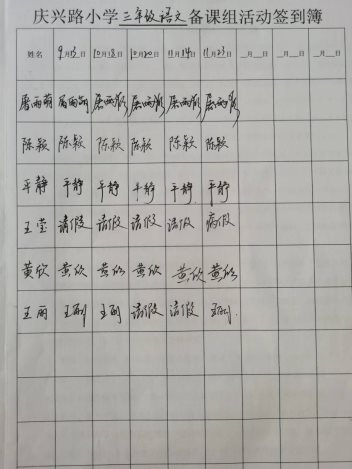 庆兴路小学三年级语文备课组活动签到簿
姓名 9月13日 10月18日 10月20日 11月14日 11月23日 __月__日 __月__日 __月__日
屠雨萌 屠雨萌 屠雨萌 屠雨萌 屠雨萌 屠雨萌
陈颖 陈颖 陈颖 陈颖 陈颖 陈颖
平静 平静 平静 平静 平静 平静
王莹 请假 请假 请假 请假 病假
黄欣 黄欣 黄欣 黄欣 黄欣 黄欣
王丽 王丽 王丽 请假 请假 王丽